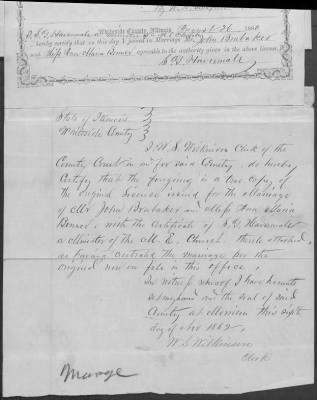 Whiteside County, Illinois, August 26 1860
I, S. G. Havermale a Minister of M. E. Church
hereby certify that on this day I joined in Marriage Mr. John Brubaker
and Miss Ann Maria Bonser agreeable to the authority given in the above license.
S. G. Havermale
State of Illinois
Whiteside County
I W. S. Wilkinson Clerk of the
County Court in and for said County, do hereby
Certify that the foregoing is a true Copy of
the original License issued for the Marriage
of Mr John Brubaker and Miss Ann Maria
Bonser, with the Certificate of S. G. Havermale
a Minister of the M. E. Church thereto attached,
as having celebrated the marriage
original now on file in this office,
In witness whereof I have hereunto
set my hand and the seal of said
County at Morrison this
day of Nov 1862,
W. S. Wilkinson
Clerk